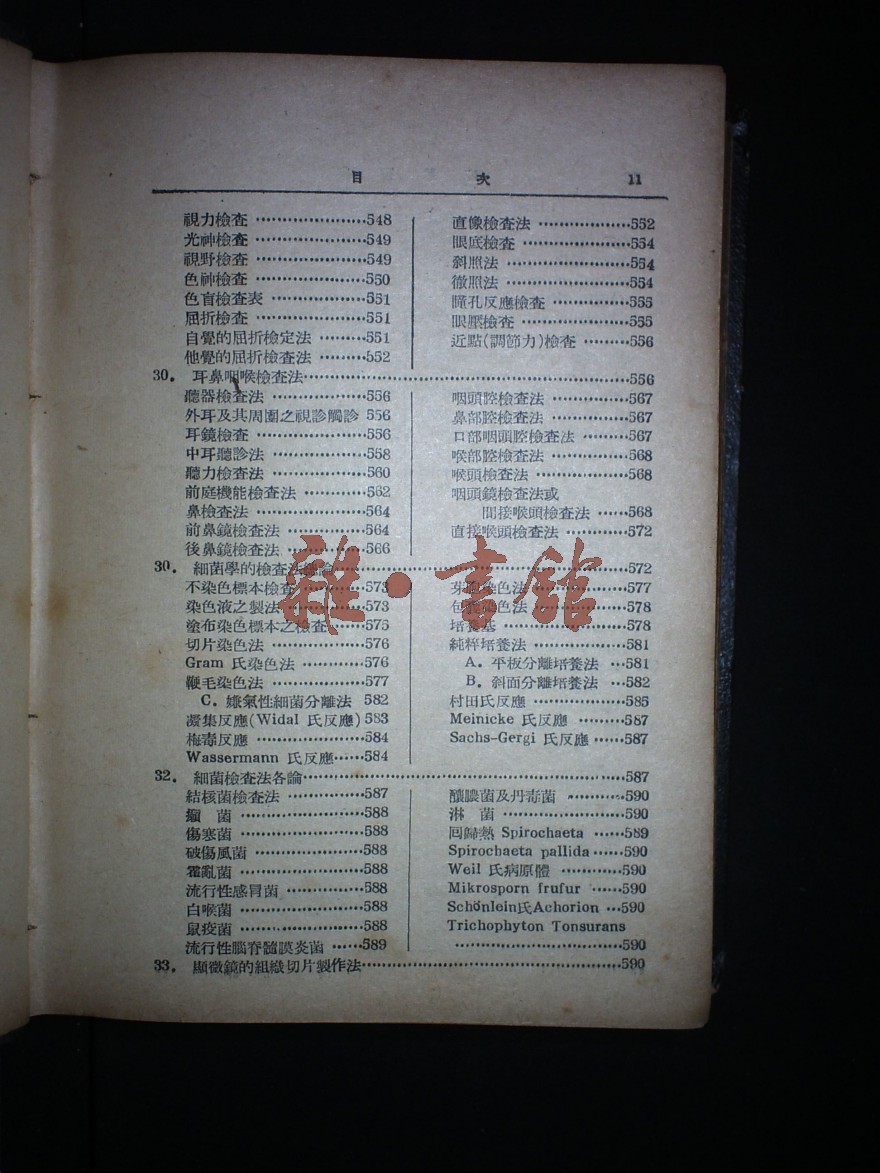 目 次 11
視力檢查 ……………………548
光神檢查 ……………………549
視野檢查 ……………………549
色神檢查 ……………………550
色盲檢查表 …………………551
屈折檢查 ……………………551
自覺的屈折檢定法 ………551
他覺的屈折檢查法 ………552
直像檢查法 …………………552
眼底檢查 ……………………554
斜照法 ………………………554
徹照法 ………………………554
瞳孔反應檢查 ………………555
眼壓檢查 ……………………555
近點(調節力)檢查 ………556
30. 耳鼻咽喉檢查法……………………………………………556
聽器檢查法 …………………556
外耳及其周圍之視診觸診 556
耳鏡檢查 ……………………556
中耳聽診法 …………………558
聽力檢查法 …………………560
前庭機能檢查法 ……………562
鼻檢查法 ……………………564
前鼻鏡檢查法 ………………564
後鼻鏡檢查法 ………………566
咽頭腔檢查法 ………………567
鼻部腔檢查法 ………………567
口部咽頭腔檢查法 …………567
喉部腔檢查法 ………………568
喉頭檢查法 …………………568
咽頭鏡檢查法或
間接喉頭檢查法 ……568
直接喉頭檢查法 ……………572
30. 細菌學的檢查法總論………………………………………572
不染色標本檢查 ……………573
染色液之製法 ………………573
塗布染色標本之檢查 ………575
切片染色法 …………………576
Gram 氏染色法 ……………576
鞭毛染色法 …………………577
芽胞染色法 …………………577
包囊染色法 …………………578
培養基 ………………………578
純粹培養法 …………………581
A. 平板分離培養法 …581
B. 斜面分離培養法 …582
C. 嫌氣性細菌分離法 582
凝集反應(Widal 氏反應) 583
梅毒反應 ……………………584
Wassermann 氏反應……584
村田氏反應 …………………585
Meinicke 氏反應 …………587
Sachs-Gergi 氏反應 ……587
32. 細菌檢查法各論……………………………………………587
結核菌檢查法 ………………587
癩 菌 ………………………588
傷寒菌 ………………………588
破傷風菌 ……………………588
霍亂菌 ………………………588
流行性感冒菌 ………………588
白喉菌 ………………………588
鼠疫菌 ………………………588
流行性腦脊髓膜炎菌 ……589
釀膿菌及丹毒菌 ……………590
淋 菌 ………………………590
回歸熱 Spirochaeta ……589
Spirochaeta pallida……590
Weil 氏病原體 ……………590
Mikrosporn frufur ……590
Schönlein氏Achorion …590
Trichophyton Tonsurans
………………………………590
33. 顯微鏡的組織切片製作法…………………………………590
雜·書館